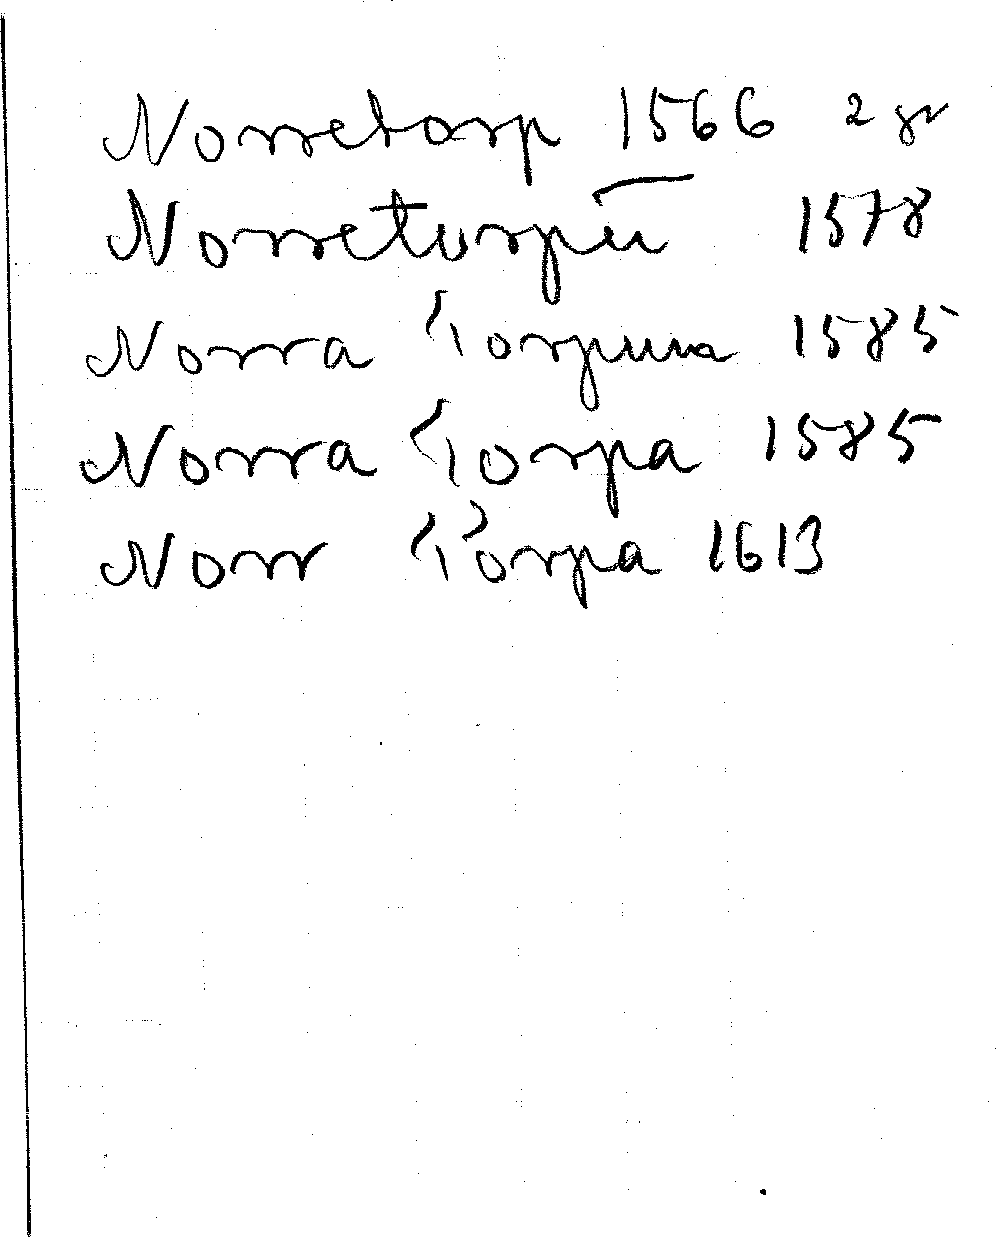 Norretorp 1566 2 gr
Norretorpū 1578
Norra Torpuna 1585
Norra Torpa 1585
Norr Torpa 1613